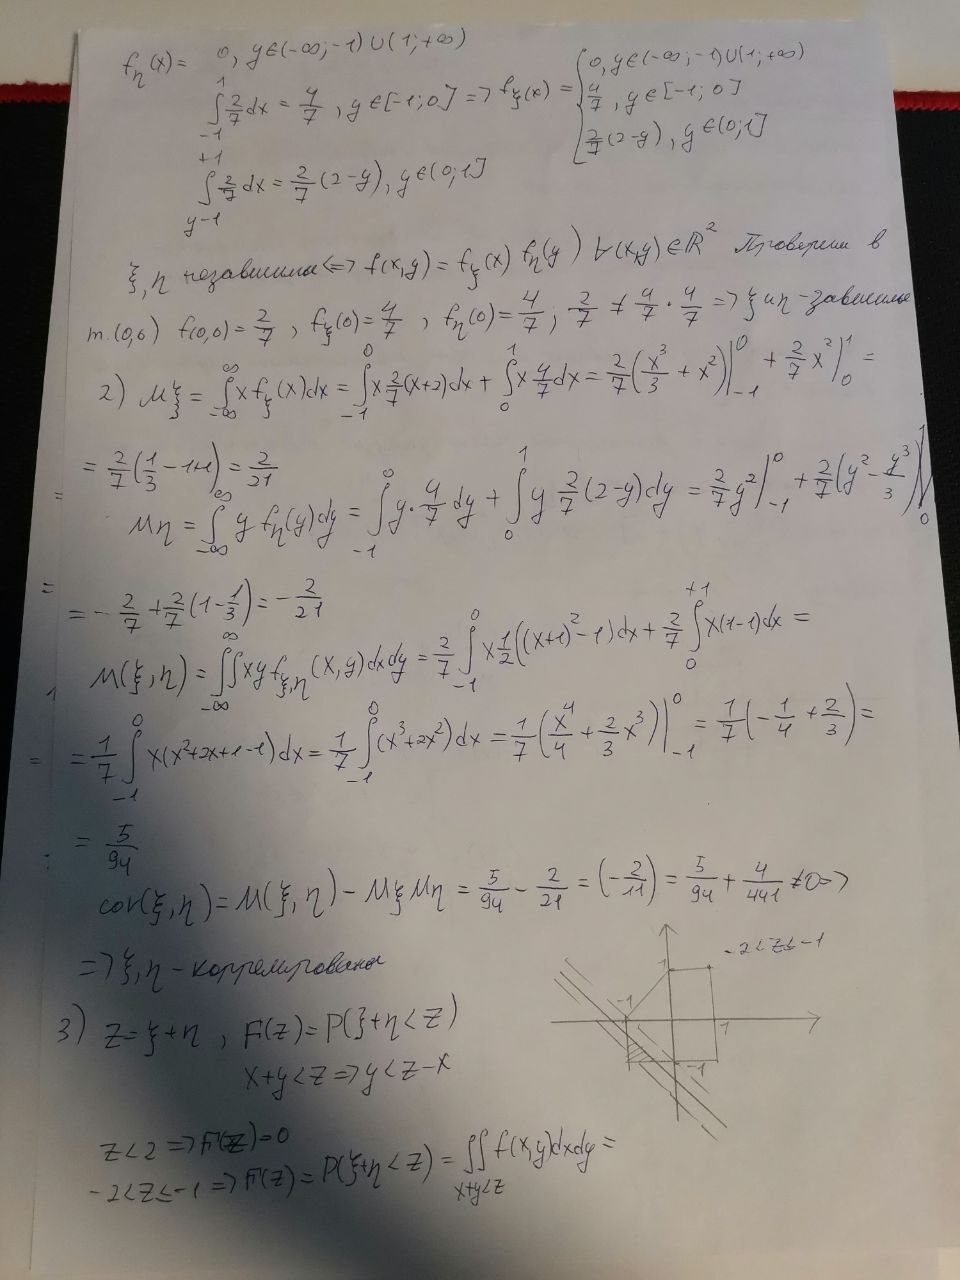 f_η(x) = 0, y∈(-∞;-1)∪(1;+∞)
∫_{-1}^{1} 2/7 dx = 4/7, y∈[-1;0] => f_ξ(x) = { 0, y∈(-∞;-1)∪(1;+∞)
4/7, y∈[-1;0]
2/7(2-y), y∈(0;1]
∫_{y-1}^{+1} 2/7 dx = 2/7(2-y), y∈(0;1]
ξ,η независимы <=> f(x,y) = f_ξ(x) f_η(y) ∀(x,y)∈ℝ² Проверим в
т.(0,0) f(0,0) = 2/7, f_ξ(0) = 4/7, f_η(0) = 4/7; 2/7 ≠ 4/7 · 4/7 => ξ и η - зависимы
2) Mξ = ∫_{-∞}^{∞} x f_ξ(x)dx = ∫_{-1}^{0} x 2/7(x+2)dx + ∫_{0}^{1} x 4/7 dx = 2/7(x³/3 + x²)|_{-1}^{0} + 2/7 x²|_{0}^{1} =
= 2/7(1/3 - 1+1) = 2/21
Mη = ∫_{-∞}^{∞} y f_η(y)dy = ∫_{-1}^{0} y · 4/7 dy + ∫_{0}^{1} y 2/7(2-y)dy = 2/7 y²|_{-1}^{0} + 2/7(y² - y³/3)|_{0}^{1}
= - 2/7 + 2/7(1 - 1/3) = - 2/21
M(ξ,η) = ∫∫_{-∞}^{∞} xy f_{ξ,η}(x,y)dxdy = 2/7 ∫_{-1}^{0} x 1/2((x+1)² - 1)dx + 2/7 ∫_{0}^{+1} x(1-1)dx =
= 1/7 ∫_{-1}^{0} x(x²+2x+1-1)dx = 1/7 ∫_{-1}^{0} (x³+2x²)dx = 1/7(x⁴/4 + 2/3 x³)|_{-1}^{0} = 1/7(-1/4 + 2/3) =
= 5/94
cov(ξ,η) = M(ξ,η) - MξMη = 5/94 - 2/21 = (-2/11) = 5/94 + 4/441 ≠ 0 =>
=> ξ,η - коррелированы
-2<z≤-1
1
-1
1
-1
3) Z = ξ+η, F(z) = P(ξ+η<z)
x+y<z => y<z-x
z<2 => F(z) = 0
-2<z≤-1 => F(z) = P(ξ+η<z) = ∫∫_{x+y<z} f(x,y)dxdy =